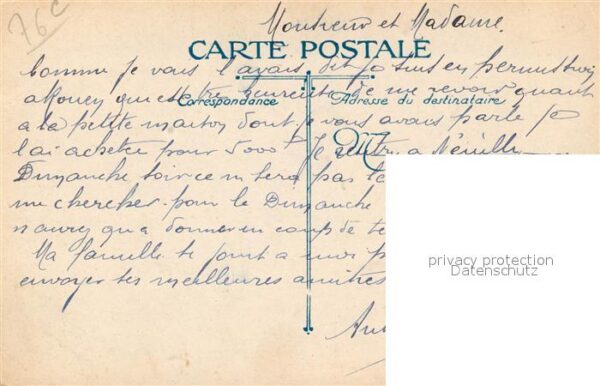 76c
Monsieur et Madame.
CARTE POSTALE
Comme je vous l'avais dit je suis en permission
a Rouen qui est tre heureuse de me revoir quant
Correspondance Adresse du destinataire
a la petite maison dont je vous avais parlé je
M
l'ai acheter pour 5000 Je rentre a
Dimanche soir ce m sera pas
me chercher. pour le Dimanche
n'aurez qu'a donner un coup de te
Ma famille te joint a moi p
envoyer ses meilleures amitiés
privacy protection
Datenschutz